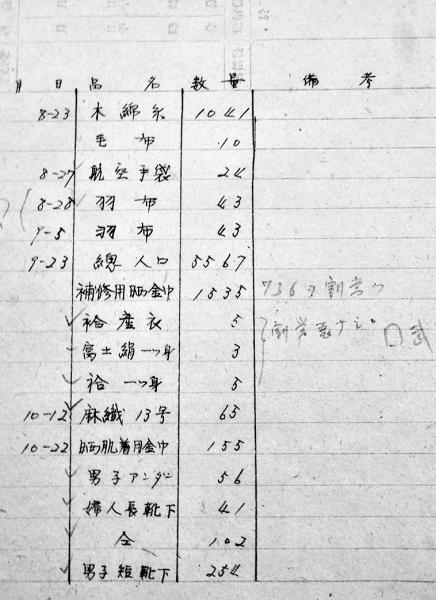 月 日 品名 数量 備考
8-23 木綿糸 1041
毛布 10
8-27 航空手袋 24
8-28 羽布 43
9-5 羽布 43
9-23 總人口 5567
補修用晒金巾 1535 736ヲ割当
袷産衣 5
富士絹一ッ身 3 割当表ナシ
袷一ッ身 5
10-12 麻織13号 65
10-22 晒肌着用金巾 155
男子アンダー 56
婦人長靴下 41
仝 102
男子短靴下 254